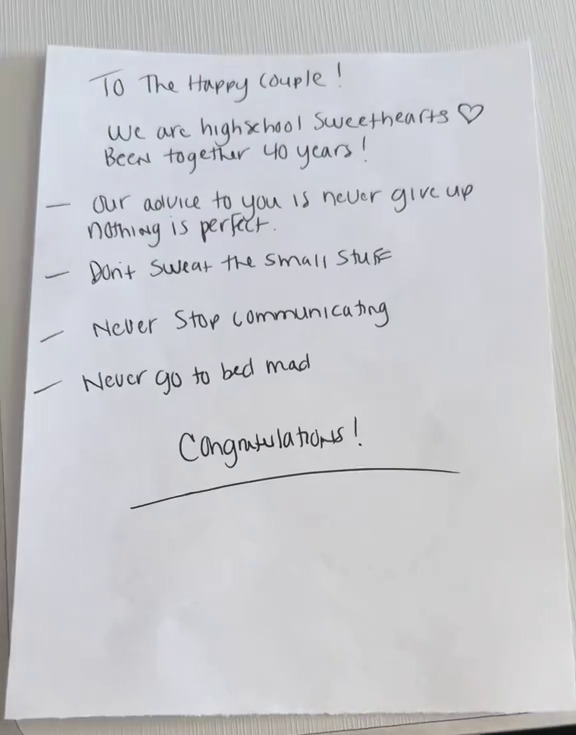 To The Happy Couple!
We are highschool Sweethearts ♡
Been together 40 years!
— Our advice to you is never give up
nothing is perfect.
— Don't sweat the small stuff
— Never Stop communicating
— Never go to bed mad
Congratulations!